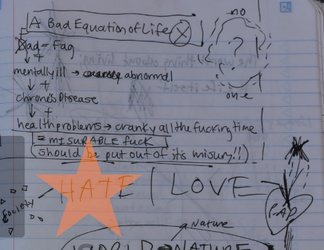 A Bad Equation of Life X
no
?
one
Dad = Fag
+
mentally ill → abnormal
+
chrone's Disease
+
health problems → cranky all the fucking time
= misurable fuck
(should be put out of it's misury!!)
HATE | LOVE
Society
Nature
WORLD
NATURE